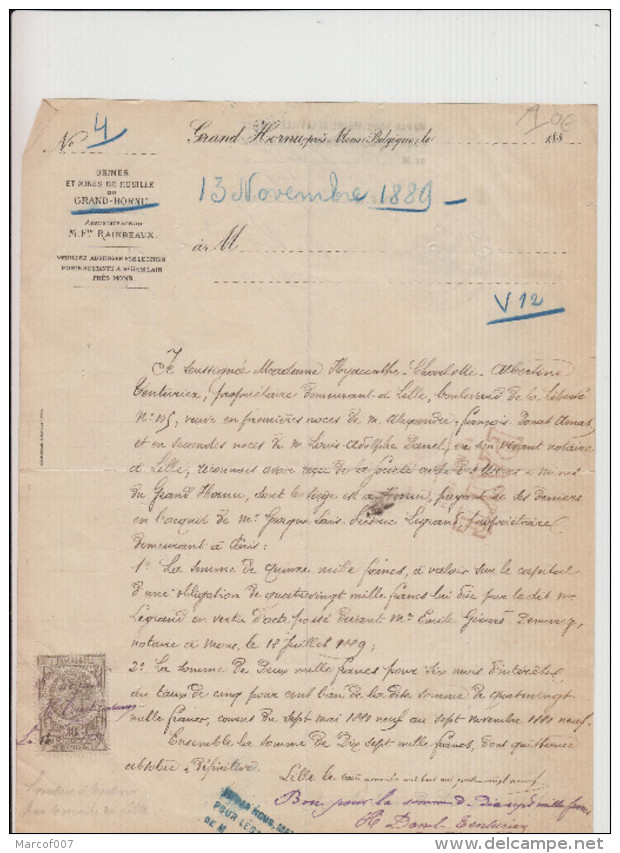 10€
No 4
Grand Hornu, près Mons, Belgique, le 188
USINES
ET MINES DE HOUILLE
DU
GRAND-HORNU
ADMINISTRATEUR
M. Fin RAINBEAUX.
13 Novembre 1889
à M
VEUILLEZ ADRESSER VOS LETTRES
POSTE RESTANTE A St GHISLAIN
PRÈS MONS
V 12
Je soussignée Madame Hyacinthe-Charlotte-Albertine
propriétaire demeurant à Lille, boulevard de la Liberté
No 105, veuve en premières noces de M. Alexandre-François-Donat
et en secondes noces de M. Louis Adolphe Danel, en son vivant notaire
à Lille, reconnais avoir reçu de la Société des Usines & mines
du Grand Hornu, dont le siège est à Hornu, payant de ses deniers
en l'acquit de Mr Louis Legrand propriétaire
demeurant à Paris:
1o La somme de quinze mille francs, à valoir sur le capital
d'une obligation de quatrevingt mille francs lui due par le dit Mr
Legrand en vertu d'acte passé devant Me Emile Gérard
notaire à Mons, le 18 Juillet 1889;
2o La somme de Deux mille francs pour six mois d'intérêts
au taux de cinq pour cent l'an de la dite somme de quatrevingt
mille francs, courus du sept mai 1880 neuf au sept novembre 1880 neuf.
Ensemble la somme de Dix sept mille francs, dont quittance
absolue & définitive.
Lille le
Bon pour la somme de dix sept mille francs
H Danel
PAR NOUS,
POUR
DE M
Marcof007
www.delcampe.net